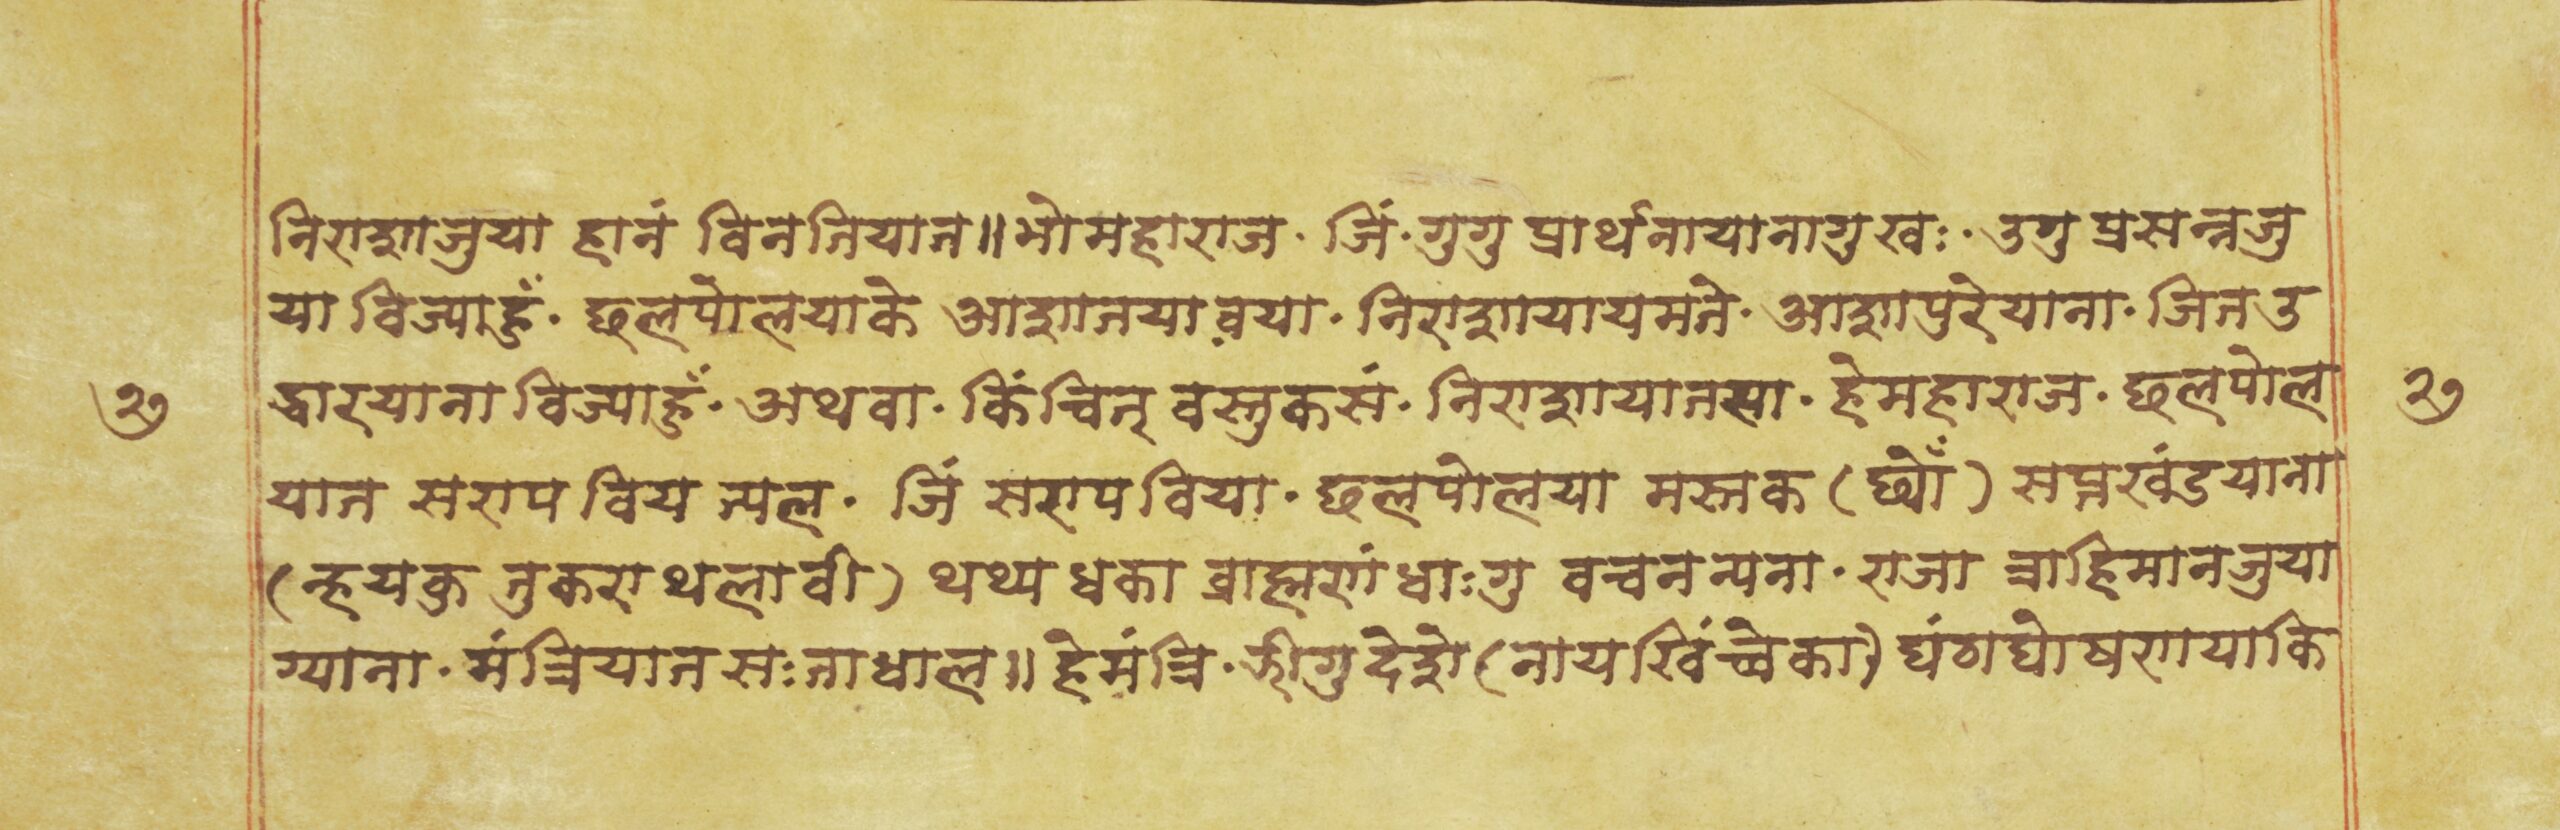 निराशाजुया हानं विनतियात॥भोमहाराज· जिं·गुगु प्रार्थनायानागुखः·उगु प्रसन्नजु
या विज्याहुँ· छलपोलयाके आशातयावया· निराशायायमते· आशापुरेयाना· जितउ
२७ द्धारयाना विज्याहुँ· अथवा· किंचित् वस्तुकसं· निराशायातसा· हेमहाराज· छलपोल २७
यात सराप वियत्यल· जिं सरापविया· छलपोलया मस्तक (छ्योँ) सप्तखंडयाना
(न्हयकु तुकराथलावी) थथ्य धका ब्राह्मणंधाःगु वचनन्यना· राजा त्राहिमानजुया
ग्याना· मंत्रियातसःताधाल॥हेमंत्रि·झीगुदेशे (नायखिंच्वेका) घंठाघोषणायाकि